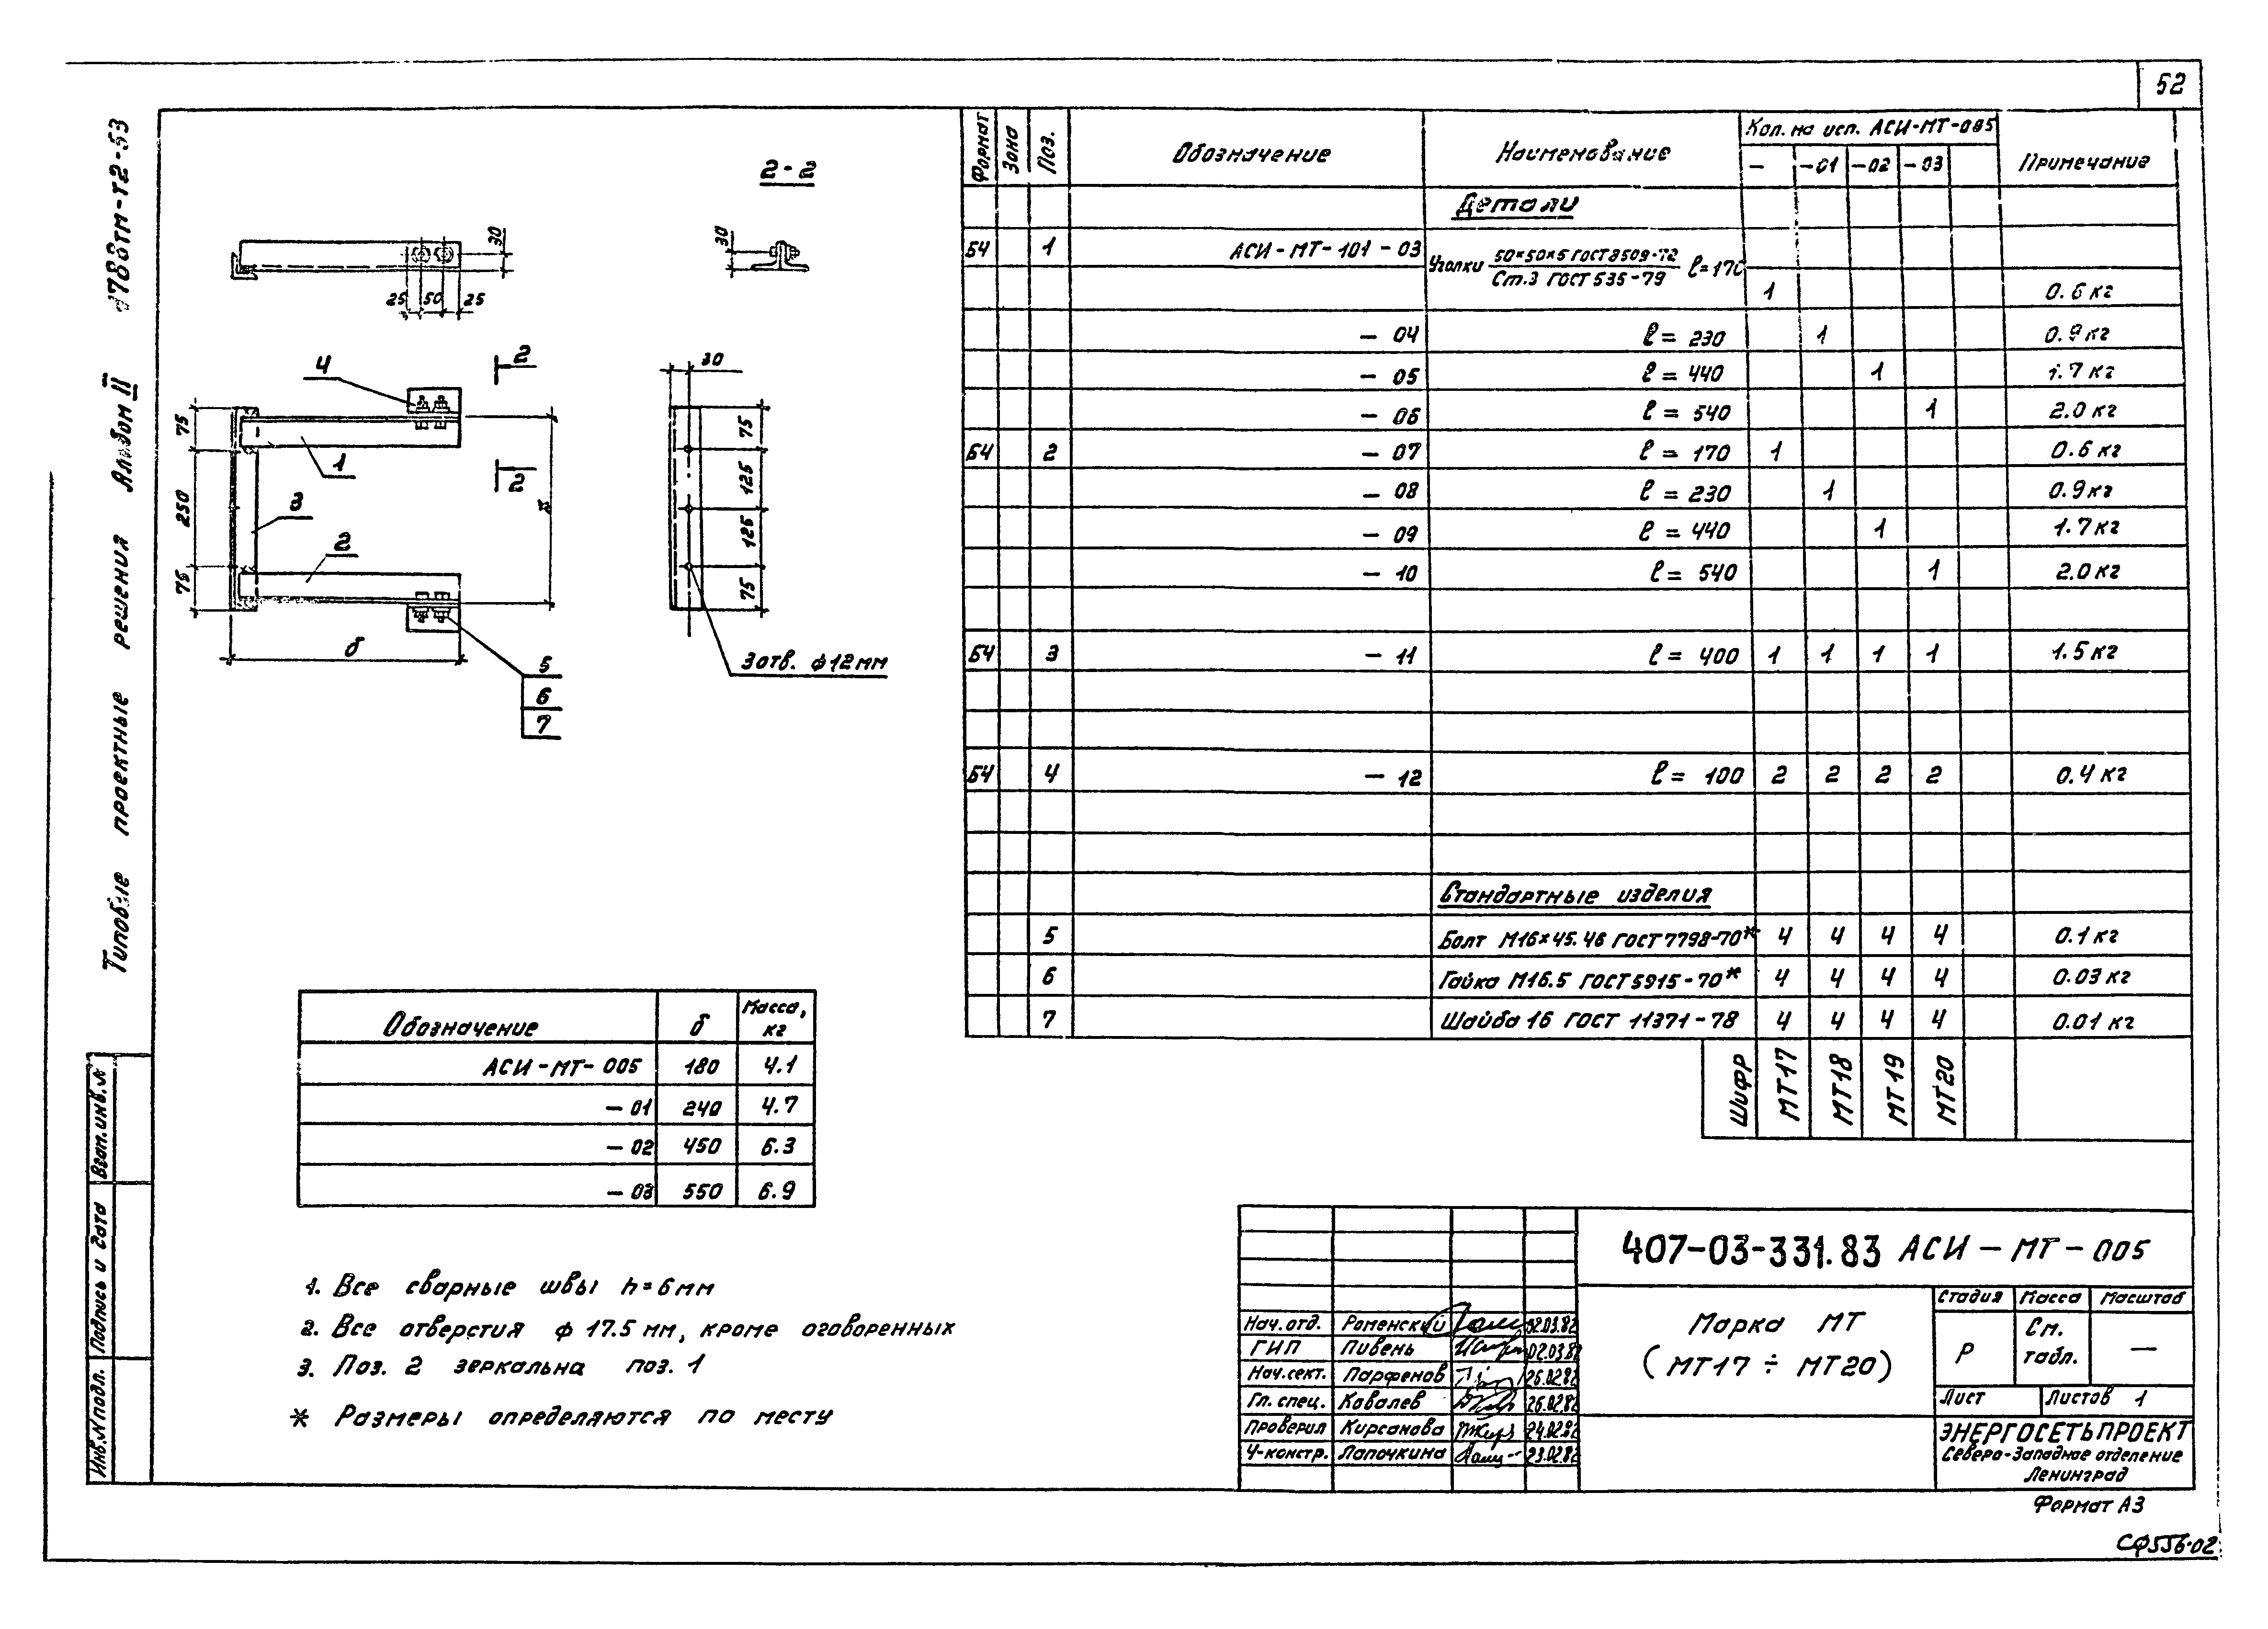 52
Типовые проектные решения Альбом II
2-2
30
25 50 25
30
4
2
30
75
1
250
3
2
75
2
*
75
125
125
75
б
5
6
7
3 отв. ф12мм
Формат Зона Поз. Обозначение Наименование Кол. на исп. АСИ-МТ-005 Примечание
— -01 -02 -03
Детали
БЧ 1 АСИ-МТ-101-03 Уголки 50×50×5 ГОСТ 8509-72 / Ст.3 ГОСТ 535-79 ℓ=170
1 0.6 кг
— 04 ℓ = 230 1 0.9 кг
— 05 ℓ = 440 1 1.7 кг
— 06 ℓ = 540 1 2.0 кг
БЧ 2 — 07 ℓ = 170 1 0.6 кг
— 08 ℓ = 230 1 0.9 кг
— 09 ℓ = 440 1 1.7 кг
— 10 ℓ = 540 1 2.0 кг
БЧ 3 — 11 ℓ = 400 1 1 1 1 1.5 кг
БЧ 4 — 12 ℓ = 100 2 2 2 2 0.4 кг
Стандартные изделия
5 Болт М16×45.46 ГОСТ 7798-70* 4 4 4 4 0.1 кг
6 Гайка М16.5 ГОСТ 5915-70* 4 4 4 4 0.03 кг
7 Шайба 16 ГОСТ 11371-78 4 4 4 4 0.01 кг
Шифр МТ17 МТ18 МТ19 МТ20
Обозначение б Масса, кг
АСИ-МТ-005 180 4.1
— 01 240 4.7
— 02 450 6.3
— 03 550 6.9
1. Все сварные швы h=6мм
2. Все отверстия ф 17.5 мм, кроме оговоренных
3. Поз. 2 зеркальна поз. 1
* Размеры определяются по месту
Взам.инв.№
Подпись и дата
Инв.№ подл.
407-03-331.83 АСИ-МТ-005
Марка МТ
(МТ17 ÷ МТ20)
Стадия Масса Масштаб
Р См. табл. —
Лист Листов 1
ЭНЕРГОСЕТЬПРОЕКТ
Северо-Западное отделение
Ленинград
Нач.отд. Роменский 02.03.82
ГИП Пивень 02.03.82
Нач.сект. Парфенов 26.02.82
Гл. спец. Ковалев 26.02.82
Проверил Кирсанова 24.02.82
Ч-констр. Лапочкина 23.02.82
Формат А3
СФ556-02